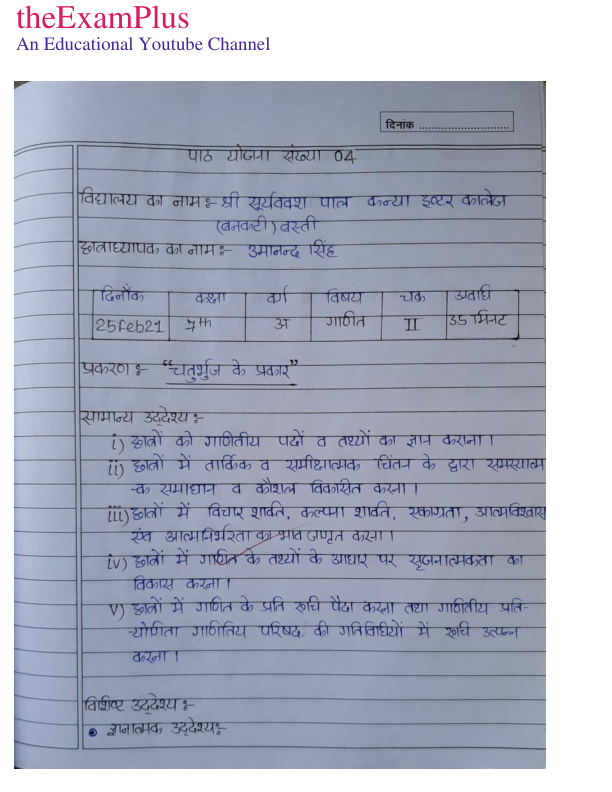 theExamPlus
An Educational Youtube Channel
दिनांक ..............................
पाठ योजना संख्या 04
विद्यालय का नाम :- श्री सूर्यवक्श पाल कन्या इण्टर कालेज
(बनकटी) बस्ती
छात्राध्यापक का नाम :- उमानन्द सिंह
दिनाँक कक्षा वर्ग विषय चक्र अवधि
25feb21 7th अ गणित II 35 मिनट
प्रकरण :- "चतुर्भुज के प्रकार"
सामान्य उद्देश्य :-
i) छात्रों को गाणितीय पदों व तथ्यों का ज्ञान कराना।
ii) छात्रों में तार्किक व समीक्षात्मक चिंतन के द्वारा समस्यात्म
-क समाधान व कौशल विकसित करना।
iii) छात्रों में विचार शक्ति, कल्पना शक्ति, एकाग्रता, आत्मविश्वास
एंव आत्मनिर्भरता का भाव जागृत करना।
iv) छात्रों में गणित के तथ्यों के आधार पर सृजनात्मकता का
विकास करना।
v) छात्रों में गणित के प्रति रूचि पैदा करना तथा गाणितीय प्रति-
-योगिता गाणितिय परिषद, की गतिविधियों में रूचि उत्पन्न
करना।
विशिष्ट उद्देश्य :-
• ज्ञानात्मक उद्देश्य:-